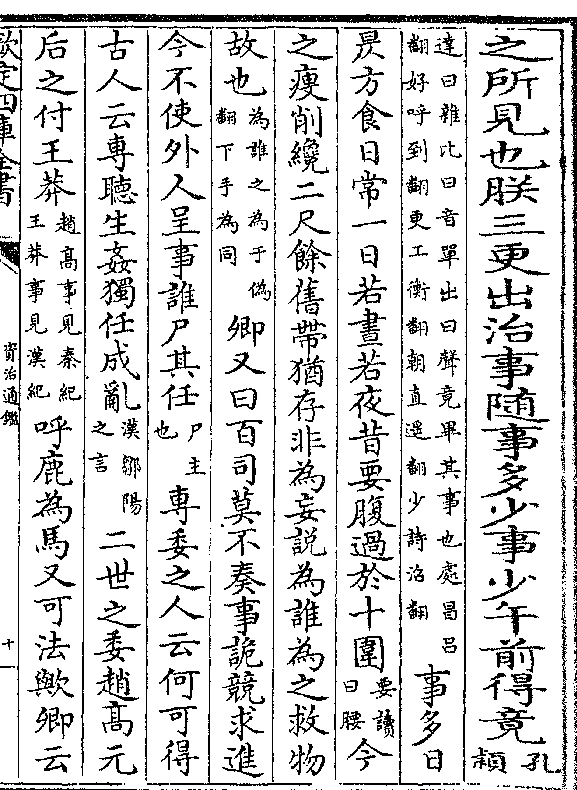 之所見也朕三更出治事随事多少事少午前得竟孔穎
達曰雜比曰音單出曰聲竟畢其事也處昌呂翻好呼到翻更工衡翻朝直遥翻少詩沼翻事多日
昃方食日常一日若晝若夜昔要腹過於十圍要讀曰腰今
之瘦削纔二尺餘舊帶猶存非為妄說為誰為之救物
故也為誰之為于偽翻下手為同卿又曰百司莫不奏事詭競求進
今不使外人呈事誰尸其任尸主也專委之人云何可得
古人云專聽生姦獨任成亂漢鄒陽之言二世之委趙髙元
后之付王莽趙髙事見秦紀王莽事見漢紀呼鹿為馬又可法歟卿云
欽定四庫全書
資治通鑑
十